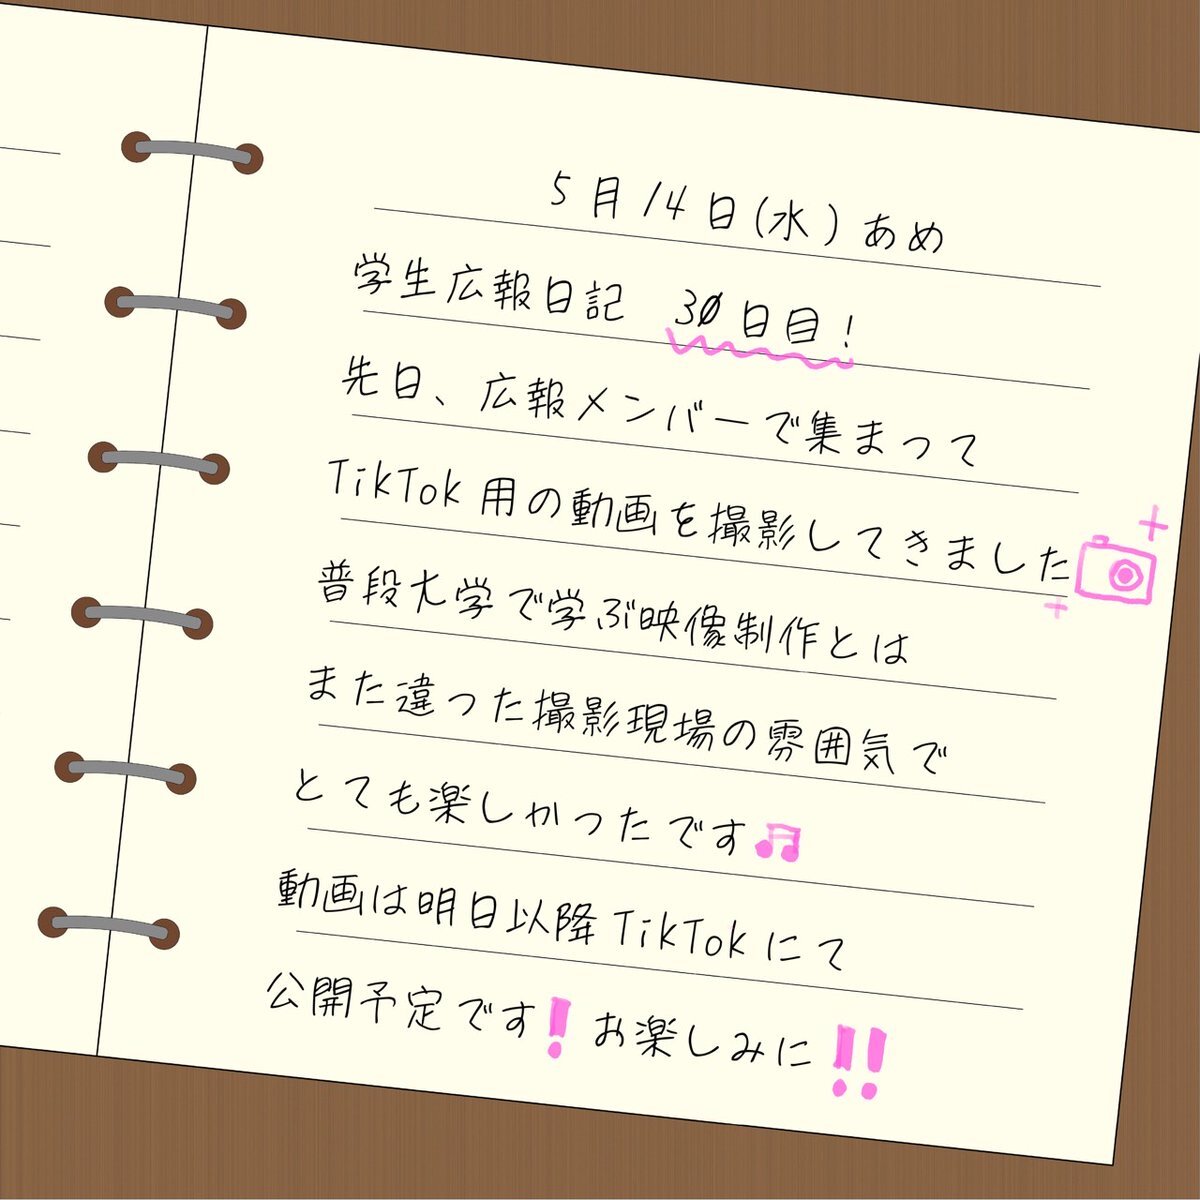 5月14日(水)あめ
学生広報日記 30日目!
先日、広報メンバーで集まって
TikTok用の動画を撮影してきました
普段大学で学ぶ映像制作とは
また違った撮影現場の雰囲気で
とても楽しかったです
動画は明日以降TikTokにて
公開予定です! お楽しみに!!